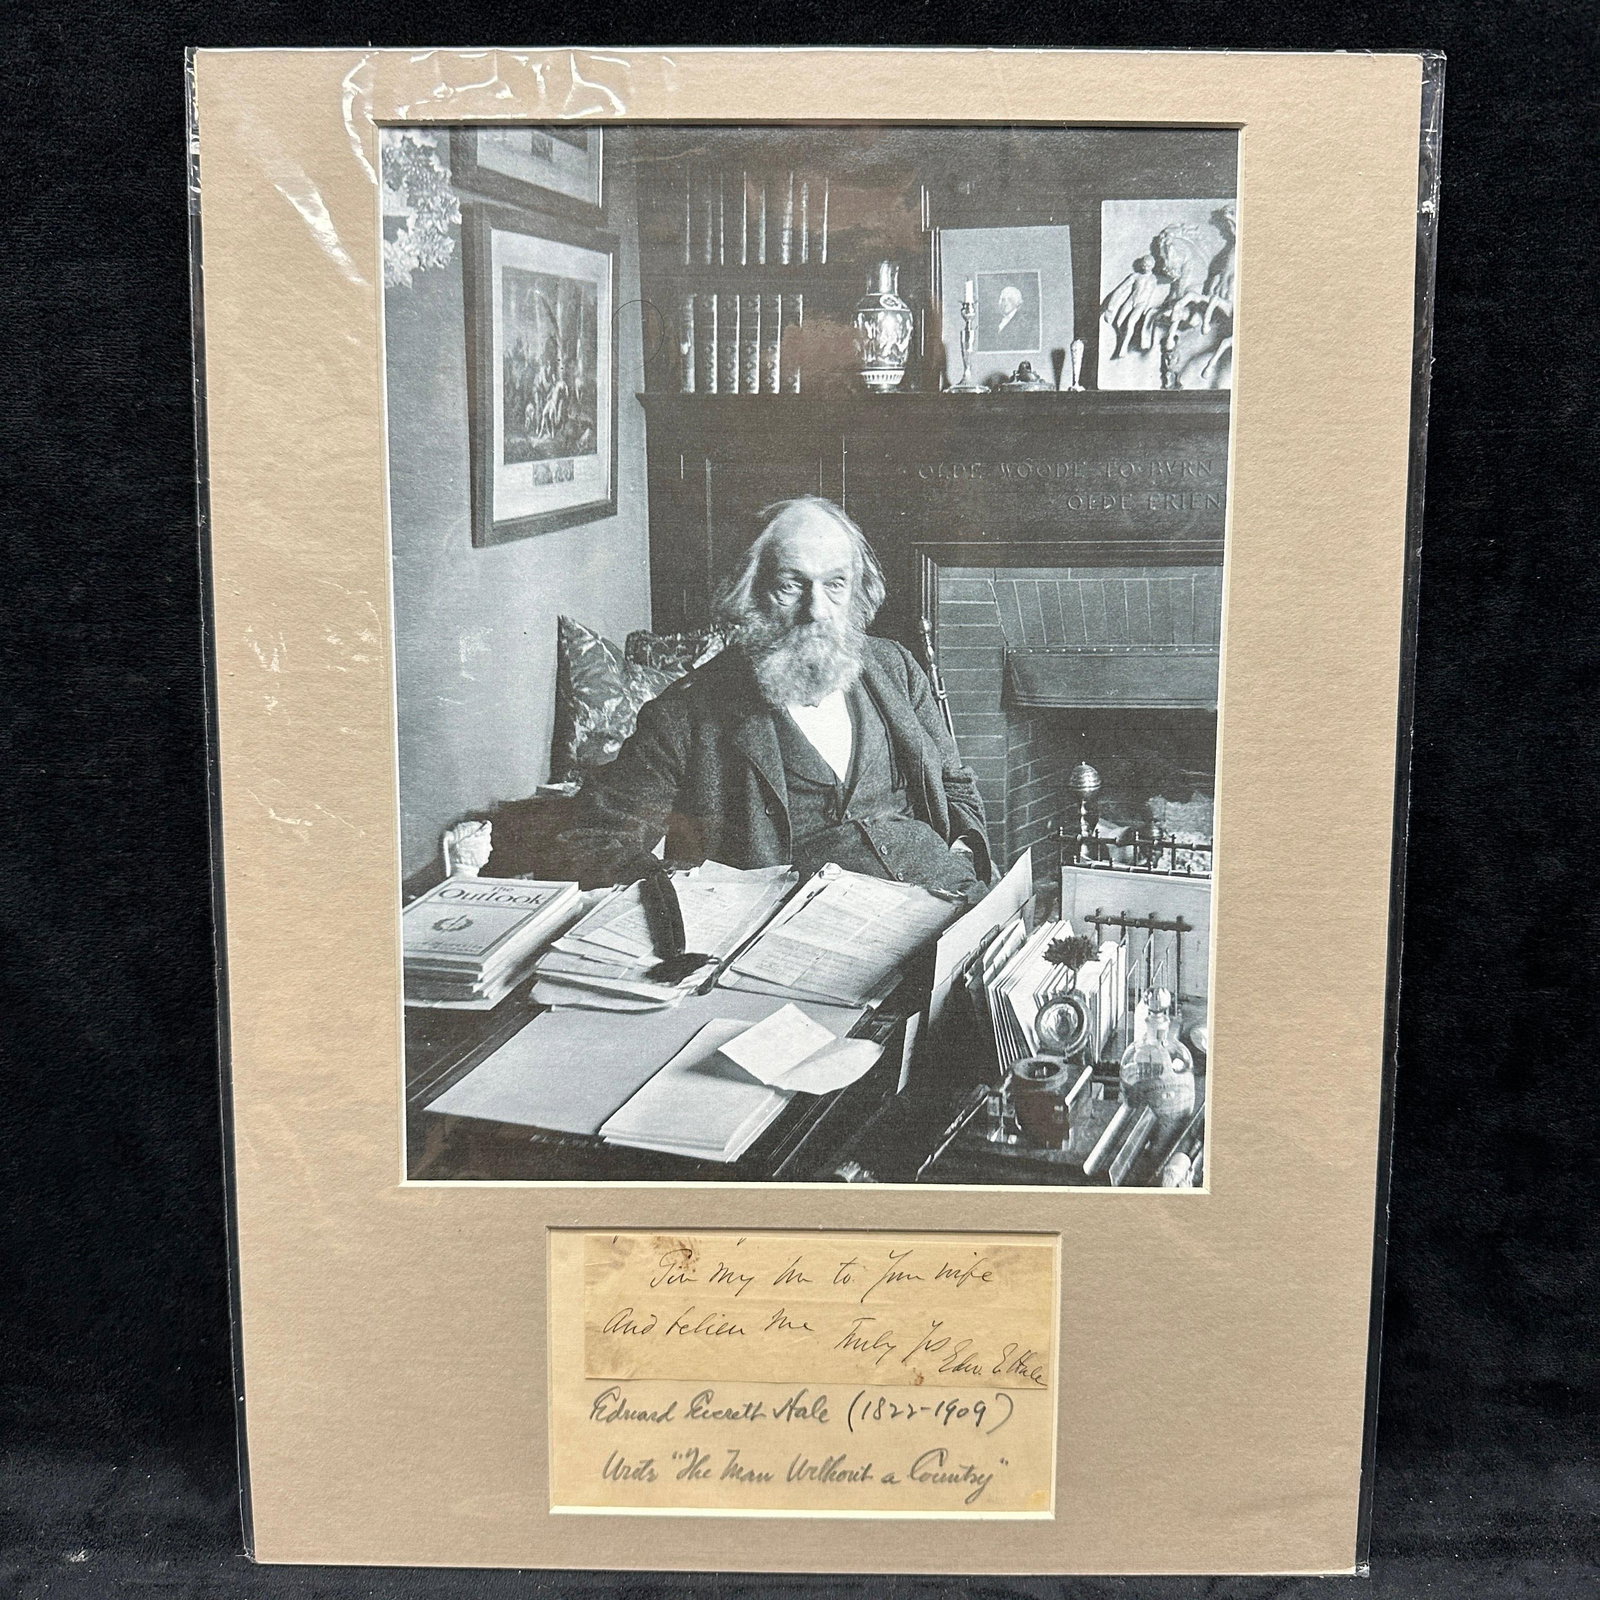 OLDE WOODE TO BVRN
OLDE FRIEN
The
Outlook
Give my love to your wife
And believe me Truly Yrs
Edw. E Hale
Edward Everett Hale (1822-1909)
Wrote "The Man Without a Country"